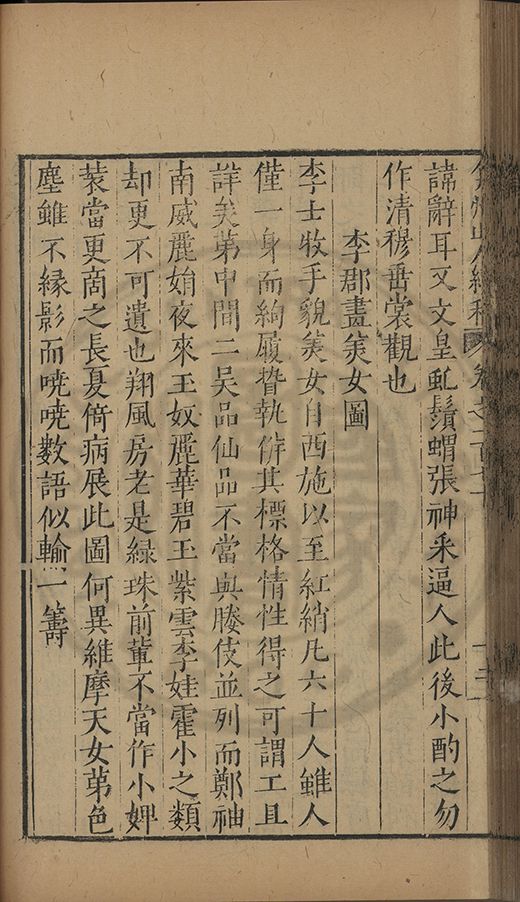 弇州山人續稿 卷之一百七十
諱辭耳又文皇虬鬚蝟張神采逼人此後小酌之勿
作清穆垂裳觀也
李郡畫美女圖
李士牧手貌美女自西施以至紅綃凡六十人雖人
僅一身而絇履贄執併其標格情性得之可謂工且
詳矣第中間二吳品仙品不當與媵伎並列而鄭袖
南威麗娟夜來王奴麗華碧玉紫雲李娃霍小之類
却更不可遺也翔風房老是緑珠前輩不當作小婢
裝當更商之長夏倚病展此圖何異維摩天女苐色
塵雖不緣影而嘵嘵數語似輸一籌